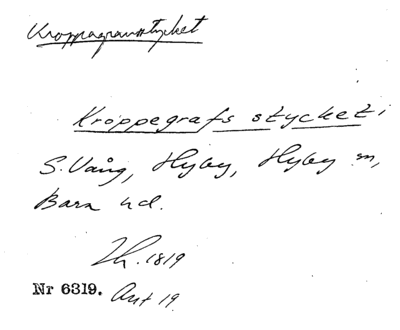 Kroppagrausstycket
Kroppegrafs stycket;
S. Vång, Hyby, Hyby sn,
Bara hd.
1819
Nr 6319. Ant 19